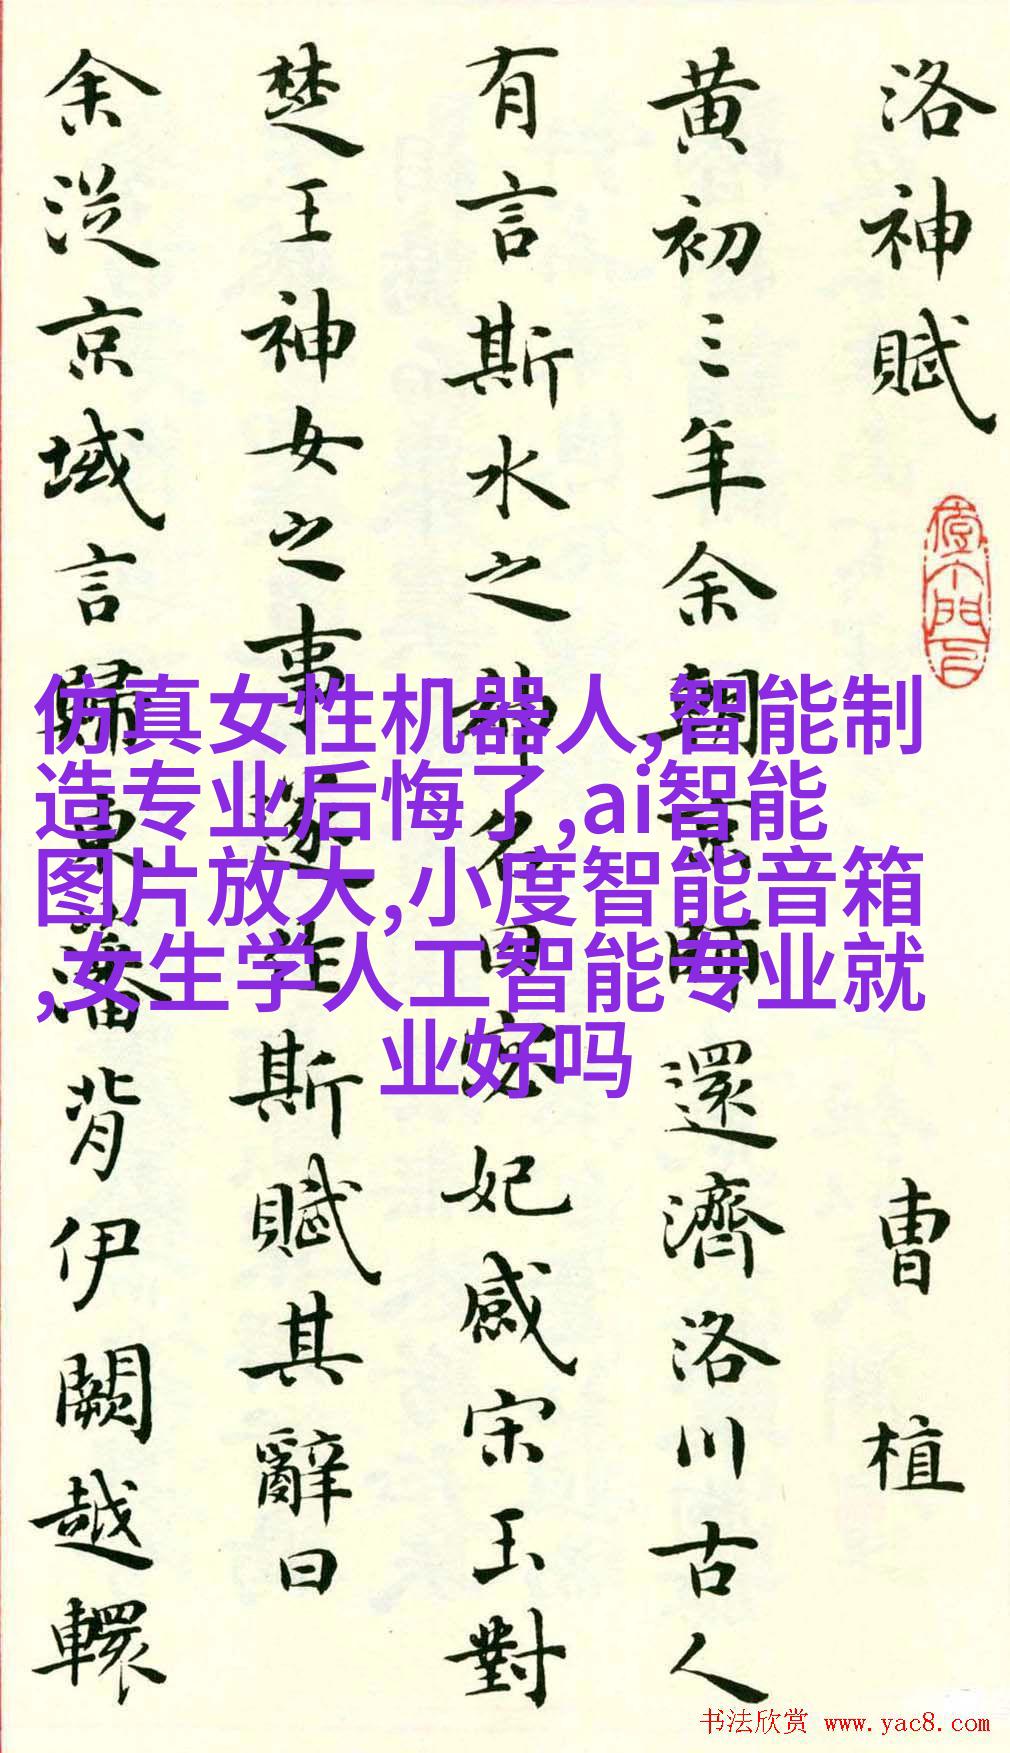 洛神賦
曹植
黄初三年余朝京師還濟洛川古人
有言斯水之神名曰宓妃感宋玉對
楚王神女之事遂作斯賦其辭曰
余從京域言歸東藩背伊闕越轘
仿真女性机器人,智能制
造专业后悔了,ai智能
图片放大,小度智能音箱
,女生学人工智能专业就
业好吗
书法欣赏 www.yac8.com